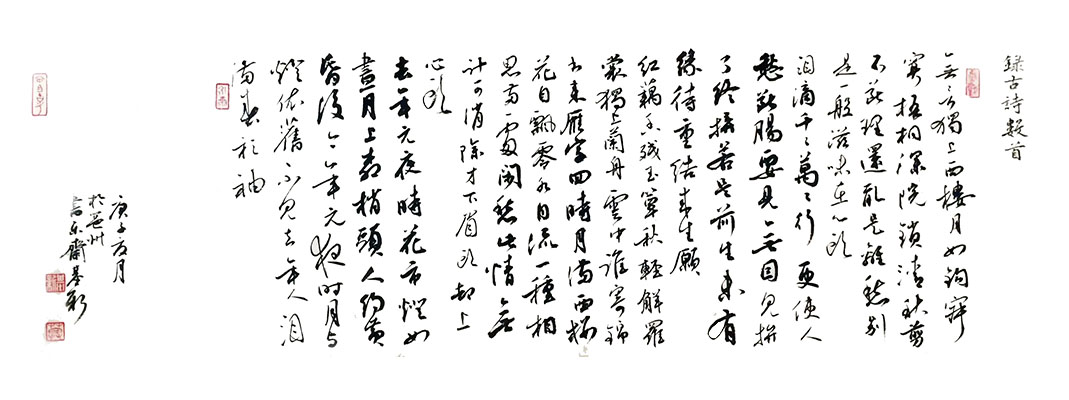 錄古詩數首
無言獨上西樓月如鉤寂
寞梧桐深院鎖清秋剪
不斷理還亂是離愁別
是一般滋味在心頭
泪滴千千萬萬行更使人
愁斷腸要見無因見拚
了終拚若是前生未有
緣待重結來生願
紅藕香殘玉簟秋輕解羅
裳獨上蘭舟雲中誰寄錦
書來雁字回時月滿西樓
花自飄零水自流一種相
思兩處閑愁此情無
計可消除才下眉頭却上
心頭
去年元夜時花市燈如
晝月上柳梢頭人約黃
昏後今年元夜時月與
燈依舊不見去年人泪
滿春衫袖
庚子夏月
於州
齋